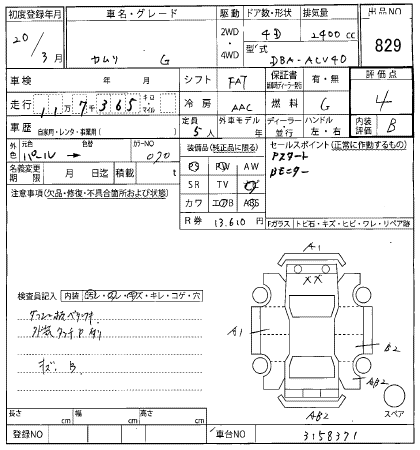 初度登録年月 車名・グレード 駆動 ドア数・形状 排気量 出品NO
20/3月 カムリ G 2WD・4WD 4D 2400cc 829
型式 DBA-ACV40
車検 年 月 シフト FAT 保証書 有・無 評価点
走行 11万7千365 キロ・マイル 冷房 AAC 燃料 G 4
車歴 自家用・レンタ・事業用( ) 定員 5人 外車モデル ディーラー・並行 ハンドル 左・右 内装評価 B
外色 元色 パール 色替 → カラーNO 070 装備品(純正品に限る) セールスポイント(正常に作動するもの)
PS PW AW Pスタート
名義変更期限 月 日迄 積載 t SR TV ナビ Bモニター
注意事項(欠品・修復・不具合箇所および状態) カワ エアB ABS
R券 13.610円 Fガラス トビ石・キズ・ヒビ・ワレ・リペア跡
A1
XX
検査員記入 内装 汚レ・コレ・キズ・キレ・コゲ・穴
A1
B2
外装タッチPアリ
キズ、B
AB2
AB2
スペア
長さ cm 幅 cm 高さ cm
登録NO 車台NO 3158371